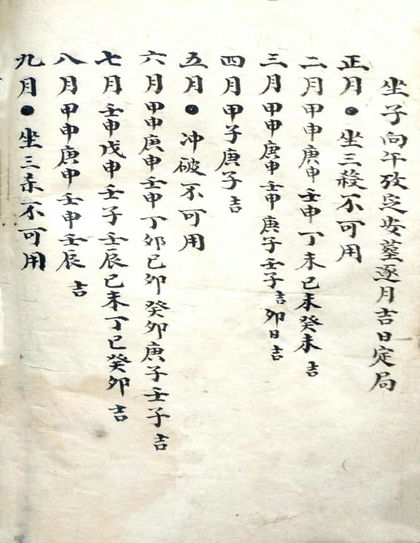 坐子向午改定安墓逐月吉日定局
正月●坐三殺不可用
二月甲申庚申壬申丁未己未癸未吉
三月甲申庚申壬申庚子壬子吉卯日吉
四月甲子庚子吉
五月●冲破不可用
六月甲申庚申壬申丁卯己卯癸卯庚子壬子吉
七月壬申戊申壬子壬辰己未丁巳癸卯吉
八月甲申庚申壬申壬辰吉
九月●坐三杀不可用